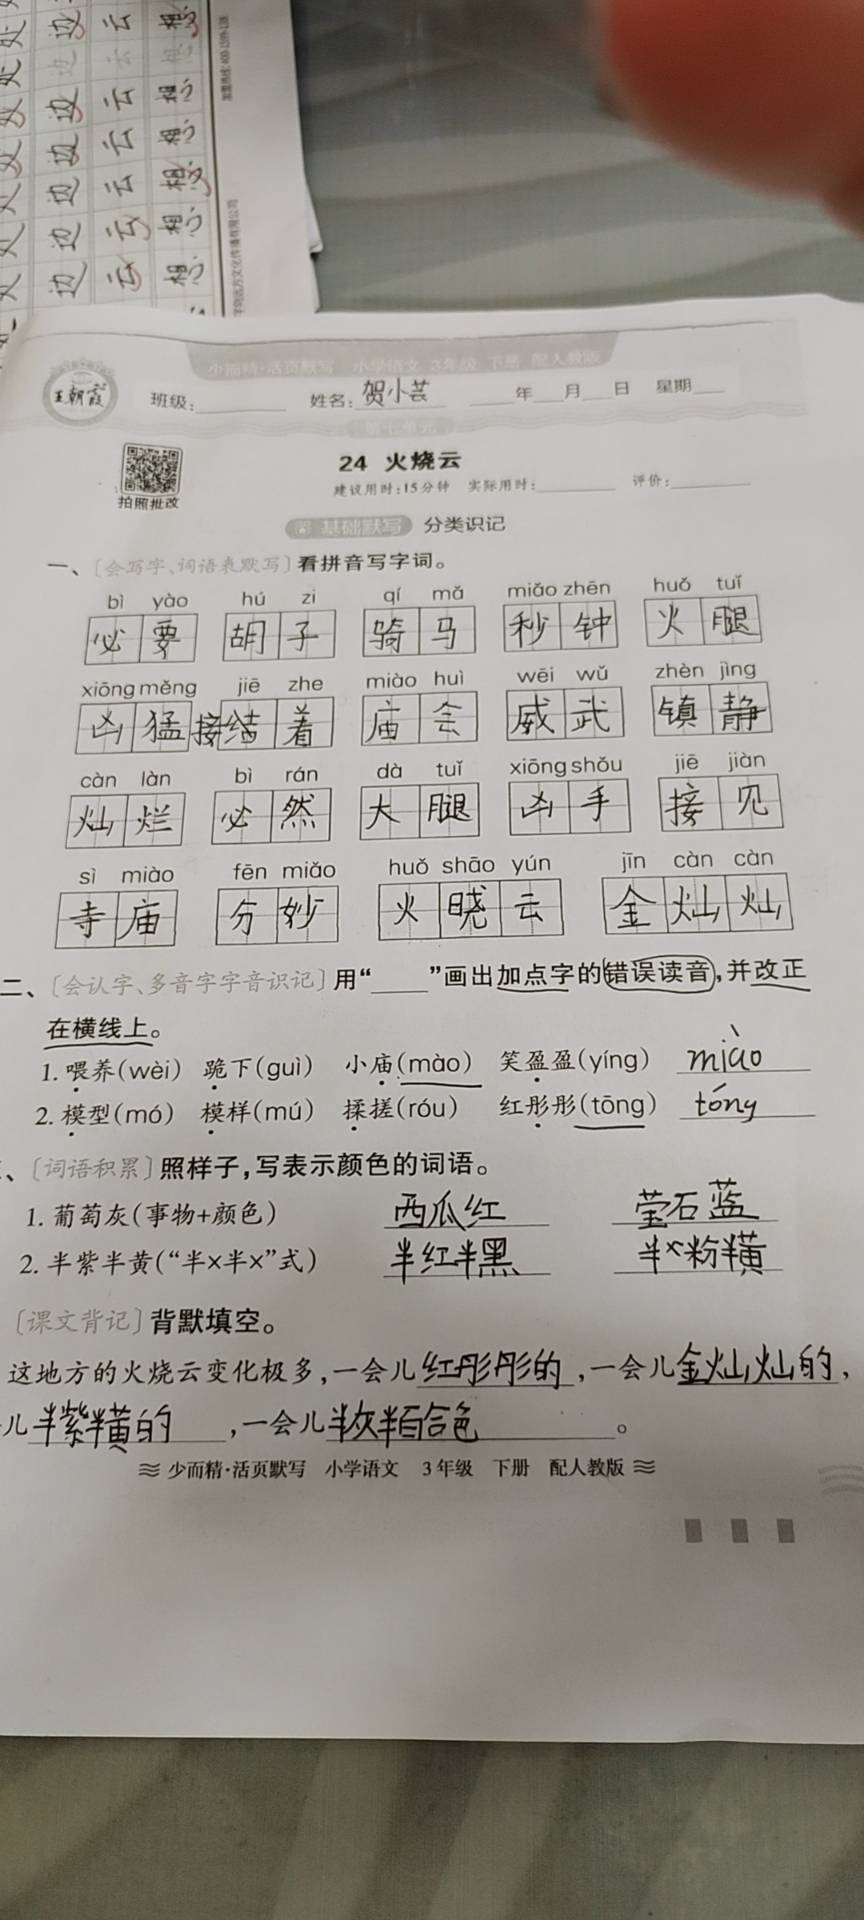 处 边 云 想
边 云 想
边 云 想
边 云 想
边 云 想
边 云 想
边 云 想
少而精·活页默写 小学语文 3年级 下册 配人教版
王朝霞 班级: 姓名:贺小芸 年 月 日 星期
24 火烧云
拍照批改 建议用时:15分钟 实际用时: 评价:
基础默写 分类识记
一、〔会写字、词语表默写〕看拼音写字词。
bì yào hú zi qí mǎ miǎo zhēn huǒ tuǐ
必要 胡子 骑马 秒钟 火腿
xiōng měng jiē zhe miào huì wēi wǔ zhèn jìng
凶猛 接结着 庙会 威武 镇静
càn làn bì rán dà tuǐ xiōng shǒu jiē jiàn
灿烂 必然 大腿 凶手 接见
sì miào fēn miǎo huǒ shāo yún jīn càn càn
寺庙 分妙 火晓云 金灿灿
二、〔会认字、多音字字音识记〕用“____”画出加点字的错误读音,并改正
在横线上。
1. 喂养(wèi) 跪下(guì) 小庙(mào) 笑盈盈(yíng) miào
2. 模型(mó) 模样(mú) 揉搓(róu) 红彤彤(tōng) tóng
、〔词语积累〕照样子,写表示颜色的词语。
1. 葡萄灰(事物+颜色) 西瓜红 莹石蓝
2. 半紫半黄(“半×半×”式) 半红半黑 半×粉半黄
〔课文背记〕背默填空。
这地方的火烧云变化极多,一会儿红彤彤的,一会儿金灿灿的,
儿半紫半黄的,一会儿半灰半百合色。
少而精·活页默写 小学语文 3年级 下册 配人教版